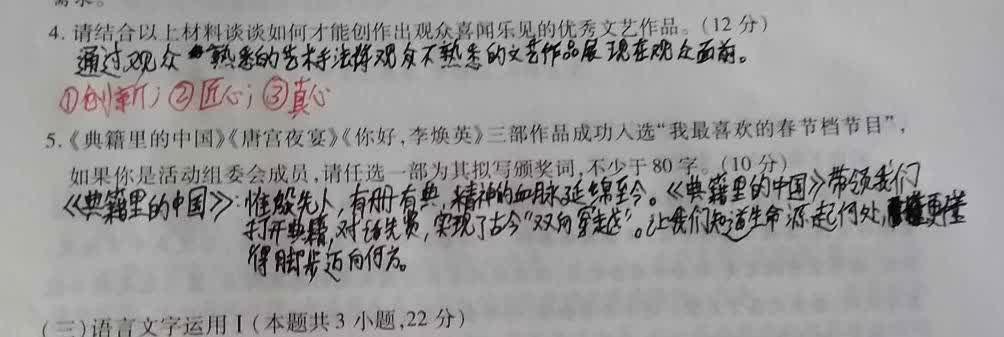 4. 请结合以上材料谈谈如何才能创作出观众喜闻乐见的优秀文艺作品。(12 分)
通过观众熟悉的艺术手法将观众不熟悉的文艺作品展现在观众面前。
①创新;②匠心;③真心
5.《典籍里的中国》《唐宫夜宴》《你好,李焕英》三部作品成功入选“我最喜欢的春节档节目”,
如果你是活动组委会成员,请任选一部为其拟写颁奖词,不少于 80 字。(10 分)
《典籍里的中国》:惟殷先人,有册有典,精神的血脉延绵至今。《典籍里的中国》带领我们
打开典籍,对话先贤,实现了古今“双向穿越”。让我们知道生命源起何处,更懂
得脚步迈向何方。
(三)语言文字运用Ⅰ(本题共 3 小题,22 分)